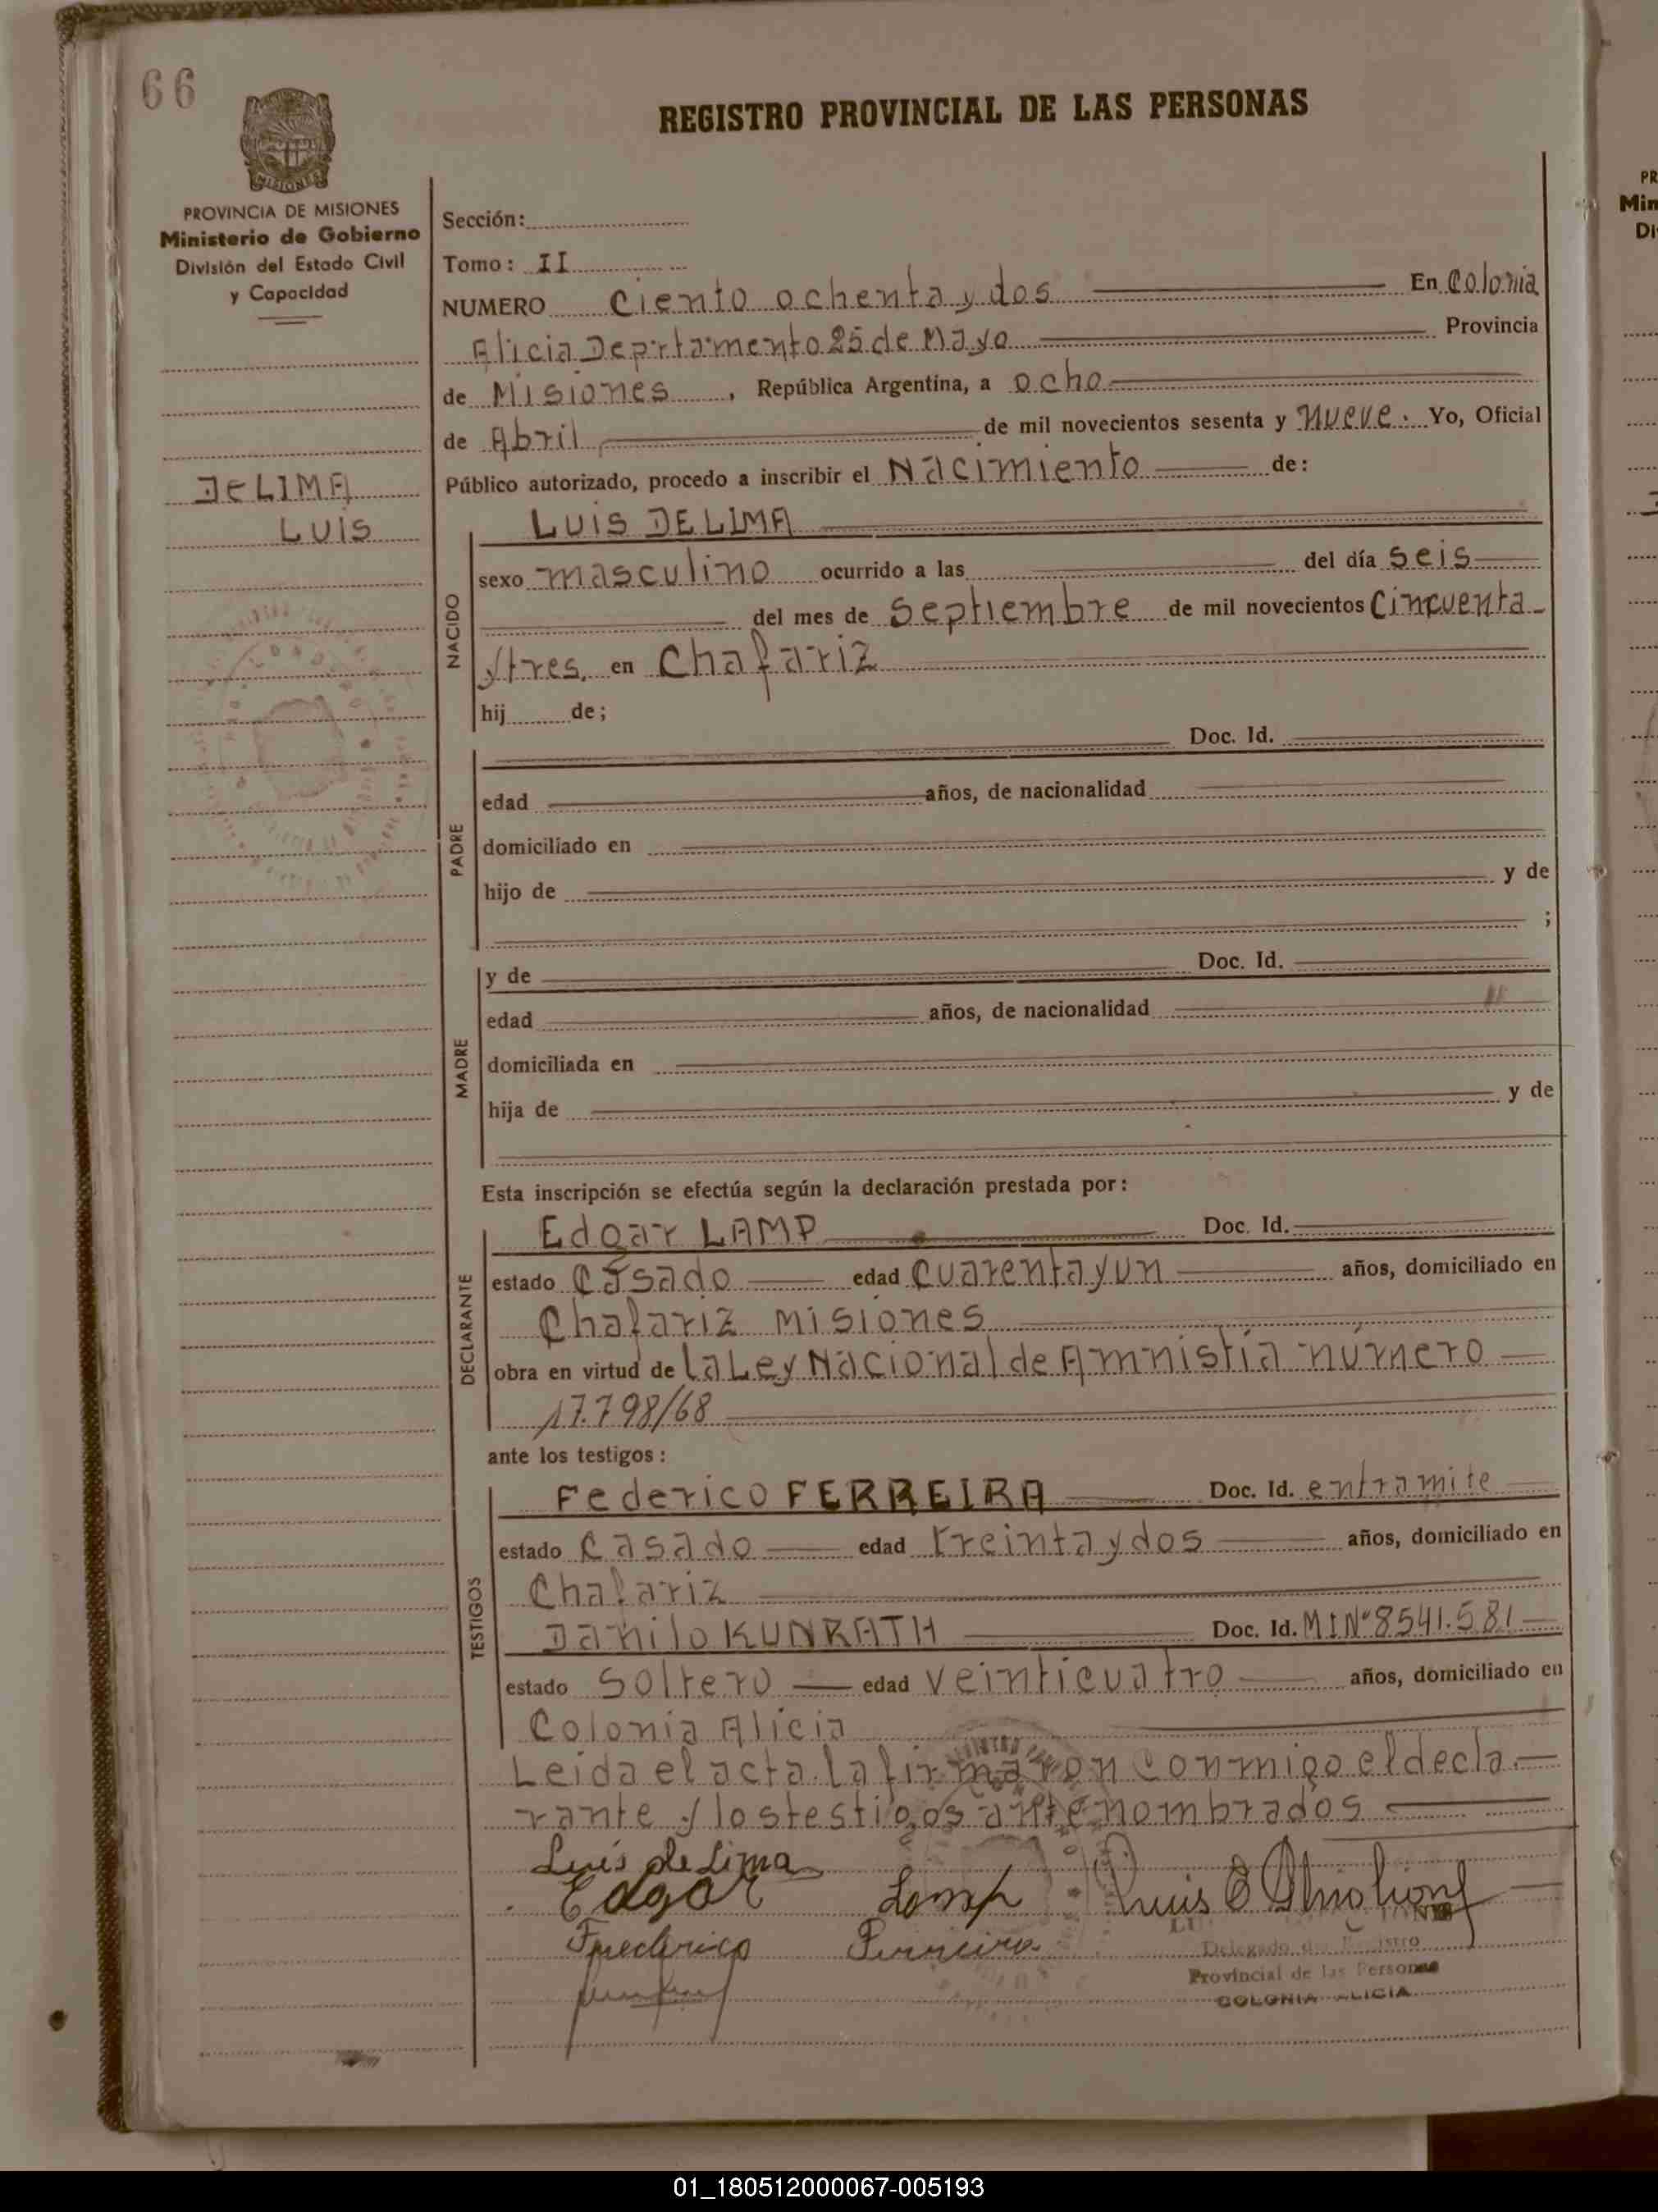 66
REGISTRO PROVINCIAL DE LAS PERSONAS
MISIONES
PROVINCIA DE MISIONES
Ministerio de Gobierno
División del Estado Civil
y Capacidad
Sección:
Tomo: II
NUMERO Ciento ochenta y dos En Colonia
Alicia Deprtamento 25 de Mayo Provincia
de Misiones, República Argentina, a ocho
de Abril, de mil novecientos sesenta y nueve. Yo, Oficial
Público autorizado, procedo a inscribir el Nacimiento de:
DE LIMA
LUIS
NACIDO
LUIS DE LIMA
sexo masculino ocurrido a las del día seis
del mes de Septiembre de mil novecientos Cincuenta
y tres, en Chafariz
hij de;
PADRE
Doc. Id.
edad años, de nacionalidad
domiciliado en
hijo de y de
;
MADRE
y de Doc. Id.
edad años, de nacionalidad
domiciliada en
hija de y de
Esta inscripción se efectúa según la declaración prestada por:
DECLARANTE
Edgar LAMP Doc. Id.
estado Casado edad Cuarenta y un años, domiciliado en
Chafariz Misiones
obra en virtud de la Ley Nacional de Amnistía número
17.798/68
ante los testigos:
TESTIGOS
Federico FERREIRA Doc. Id. en tramite
estado Casado edad treinta y dos años, domiciliado en
Chafariz
Danilo KUNRATH Doc. Id. MIN° 8541.581
estado Soltero edad veinticuatro años, domiciliado en
Colonia Alicia
Leida el acta. la firmaron conmigo el decla.
rante y los testigos ante nombrados
Luis de Lima
Edgar Lamp Luis E
Frederico Ferreira
Delegado de Registro
Provincial de las Personas
COLONIA ALICIA
PR
Min
Di
01_180512000067-005193